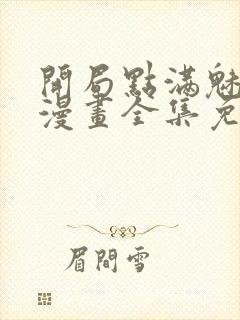 開局點滿魅
漫畫全集免
眉間雪